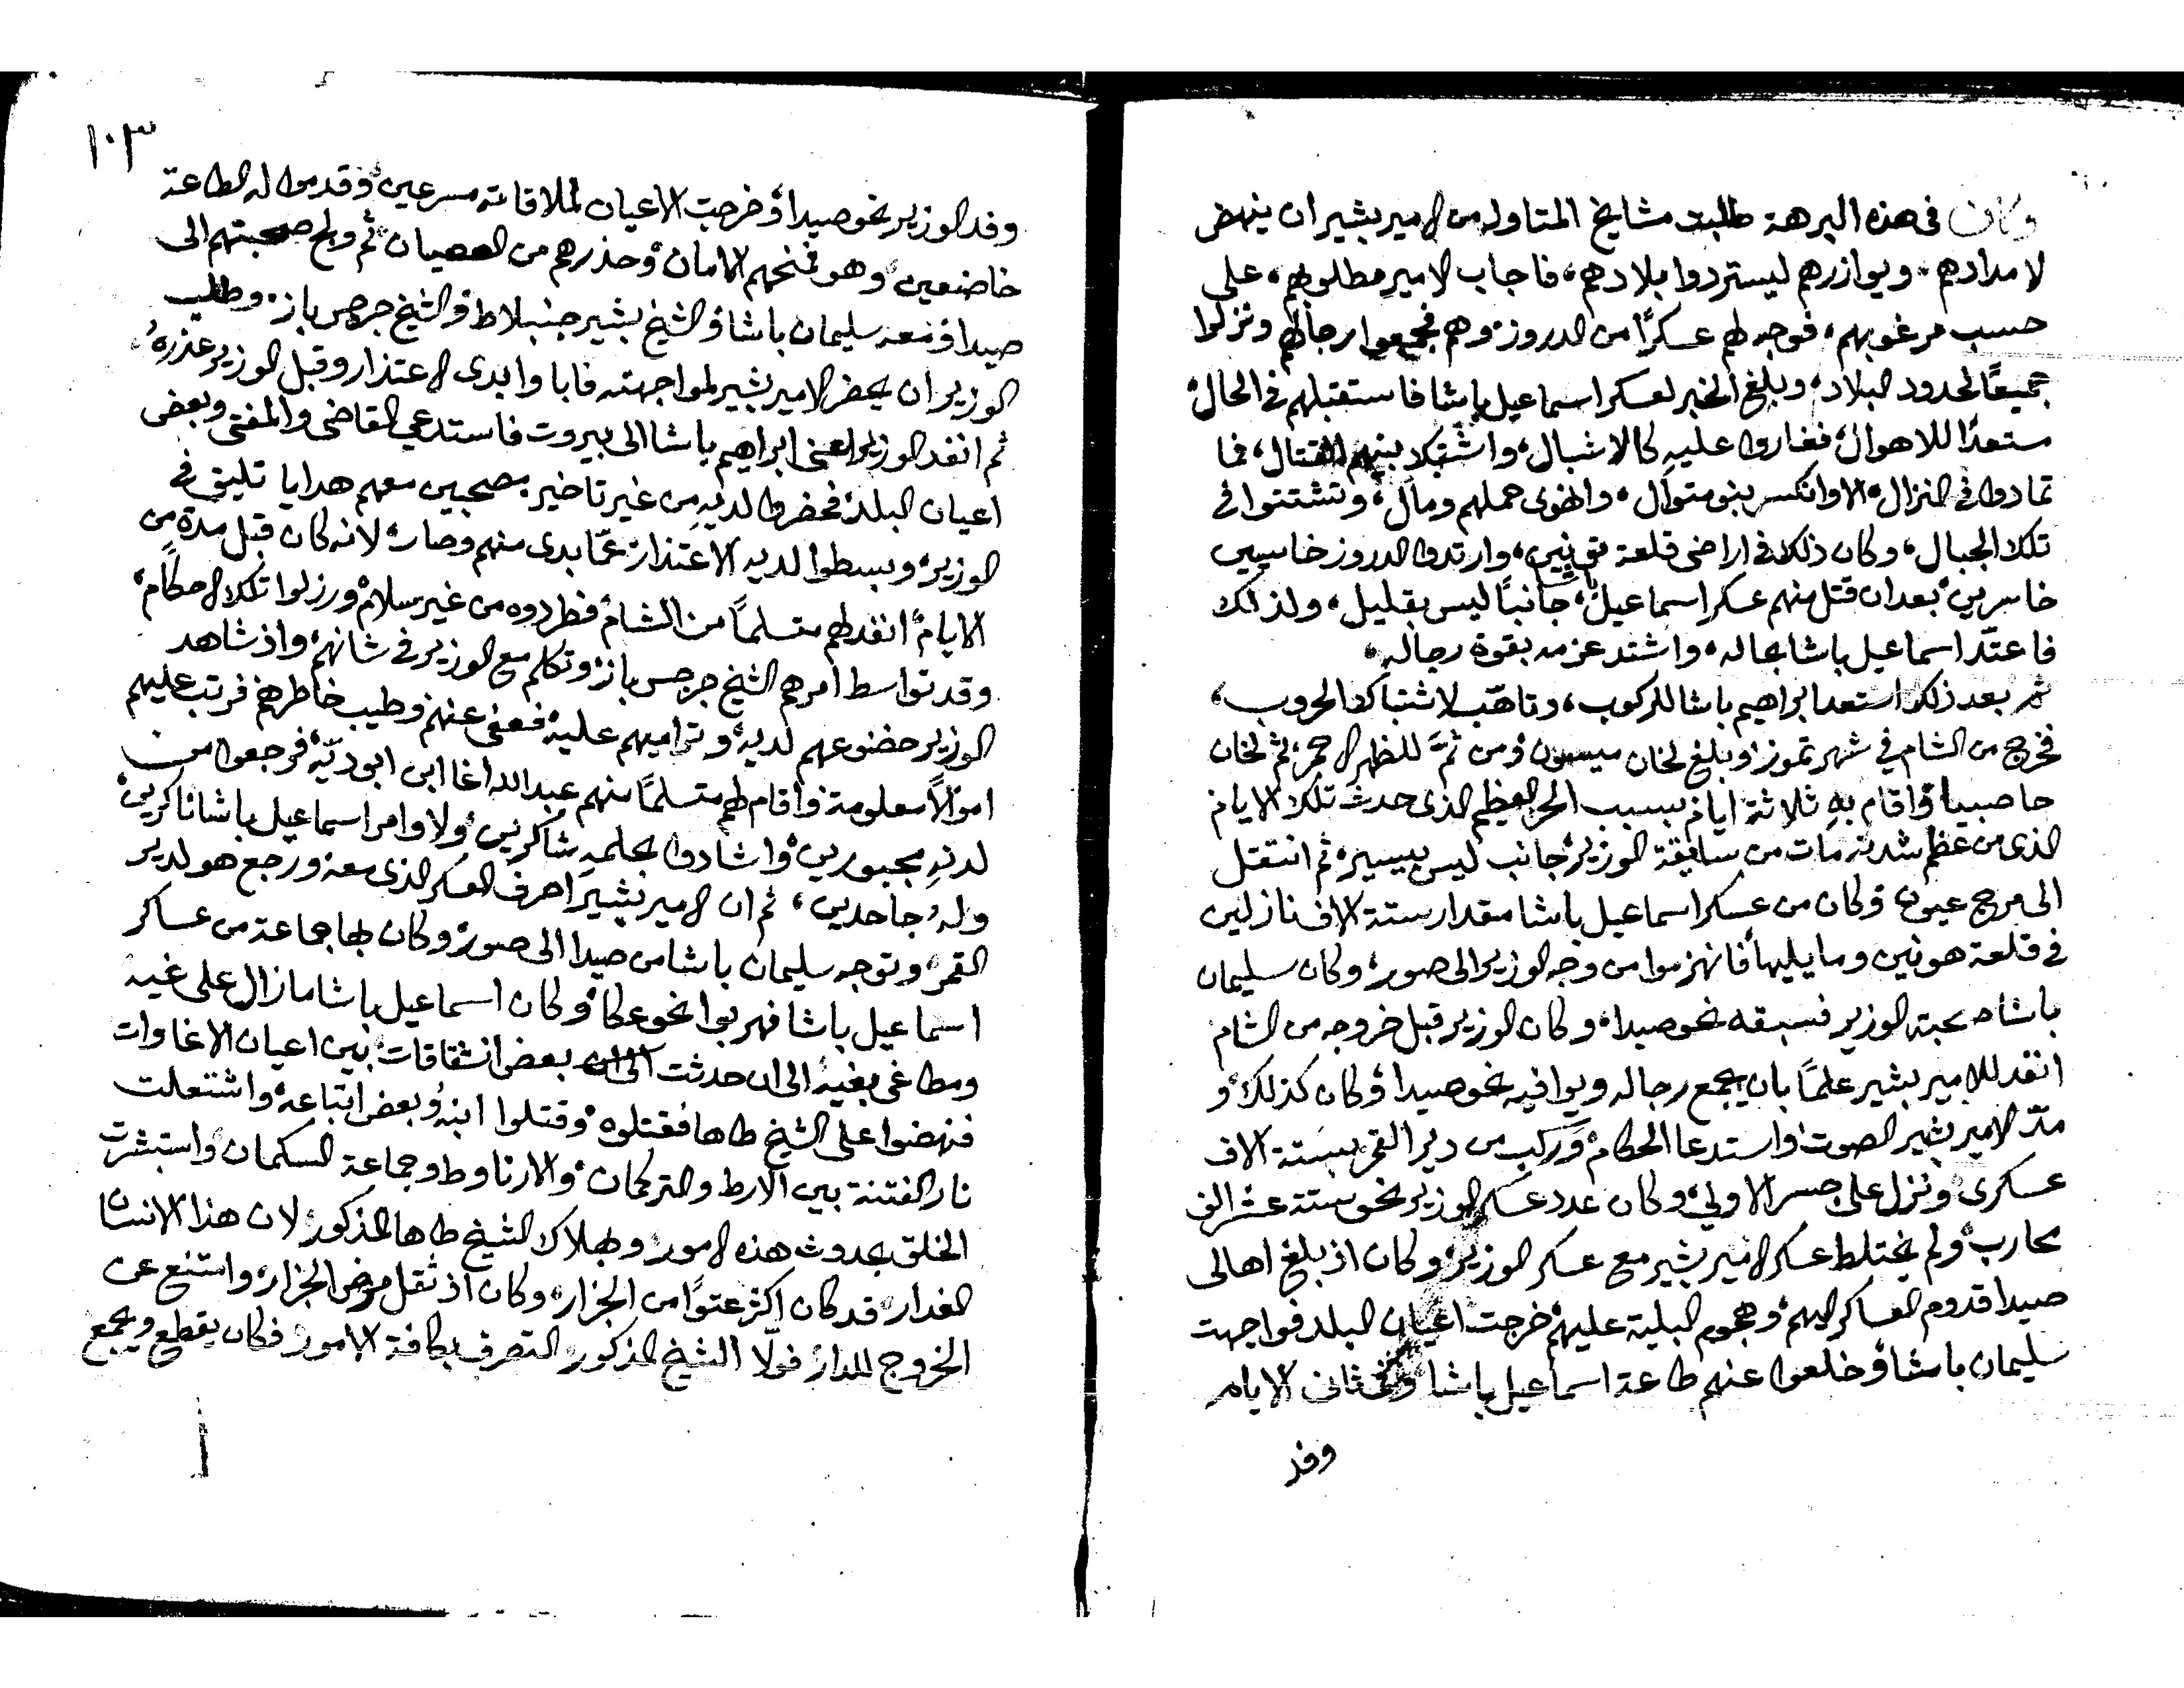 وكان في هذه البرهة طلبت مشايخ المتاوله من الامير بشير ان ينهض
لامدادهم، ويوازرهم ليستردوا بلادهم، فاجاب الامير مطلوبهم، على
حسب مرغوبهم، فوجه لهم عسكرًا من الدروز، وهم فجمعوا رجالهم ونزلوا
جميعًا لحدود البلاد، وبلغ الخبر لعسكر اسماعيل باشا فاستقبلهم في الحال،
مستعدًا للاهوال، فغاروا عليهِ كالاشبال، واشتبك بينهم القتال، فما
تمادوا في النزال، الا وانكسر بنو متوال، وانهوى حملهم ومال، وتشتتوا في
تلك الجبال، وكان ذلك في اراضي قلعة ، وارتدوا الدروز خاسيين
خاسرين، بعد ان قتل منهم عسكر اسماعيل باشا، جانبًا ليس بقليل، ولذلك
فاعتدّ اسماعيل باشا بحاله، واشتد عزمه بقوة رجاله،
ثم بعد ذلك استعد ابراهيم باشا للركوب، وتاهّب لاشتباك الحروب،
فخرج من الشام في شهر تموز، وبلغ لخان ميسون، ومن ثمَّ للظهر الاحمر، ثم لخان
حاصبيا، واقام بهِ ثلاثة ايام، بسبب الحر العظيم الذي حدث تلك الايام
الذي من عظم شدته مات من سايقة الوزير، جانب ليس بيسير، ثم انتقل
الى مرج عيون، وكان من عسكر اسماعيل باشا مقدار ستة الاف نازلين
في قلعة هونين وما يليها، فانهزموا من وجه الوزير الى صور، وكان سليمان
باشا صحبة الوزير فسبقه نحو صيدا، وكان الوزير قبل خروجه من الشام
انفد للامير بشير علمًا بان يجمع رجاله ويوافيه نحو صيدا، وكان كذلك، و
مدّ الامير بشير الصوت، واستدعا الحكام، وركب من دير القمر بستة الاف
عسكري، ونزل على جسر الاولي، وكان عدد عسكر الوزير نحو ستة عشر الف
محارب، ولم يختلط عسكر الامير بشير مع عسكر الوزير، وكان اذ بلغ اهالى
صيدا قدوم العساكر اليهم، وهجوم البلية عليهم، خرجت اعيان البلد فواجهت
سليمان باشا، وخلعوا عنهم طاعة اسماعيل باشا، وفي ثاني الايام
وفد
١٠٣
وفد الوزير نحو صيدا، وخرجت الاعيان لملاقاته مسرعين، وقدموا له الطاعة
خاضعين، وهو فمنحهم الامان، وحذرهم من العصيان، ثم ولج صحبتهم الى
صيدا، ومعه سليمان باشا، والشيخ بشير جنبلاط، والشيخ جرجس باز، وطلب
الوزير ان يحضر الامير بشير لمواجهته فابا وابدى الاعتذار وقبل الوزير عذرهُ،
ثم انفد الوزير اعني ابراهيم باشا الى بيروت فاستدعى القاضي والمفتي وبعض
اعيان البلد، فحضروا لديهِ من غير تاخير، مصحبين معهم هدايا تليق في
الوزير، وبسطوا لديه الاعتذار، عمّا بدى منهم وصار، لانه كان قبل مدة من
الايام، انفد لهم متسلمًا من الشام، فطردوه من غير سلام، ورزلوا تلك الاحكام،
وقد تواسط امرهم الشيخ جرجس باز، وتكلم مع الوزير في شانهم، واذ شاهد
الوزير خضوعهم لديه، وتراميهم عليه، فعفى عنهم، وطيب خاطرهم، فرتب عليهم
اموالاً معلومة، واقام لهم متسلمًا منهم عبد الله اغا ابن ابو ديّه، فرجعوا من
لدنهِ مجبورين، واشادوا بحلمهِ شاكرين، ولاوامر اسماعيل باشا ناكرين،
ولهُ جاحدين، ثم ان الامير بشير اصرف العسكر الذي معه، ورجع هو لدير
القمر، وتوجه سليمان باشا من صيدا الى صور، وكان بها جماعة من عساكر
اسماعيل باشا فهربوا نحو عكا، وكان اسماعيل باشا مازال على غيه
ومطاغى بغيه، الى ان حدثت بعض انشقاقات، بين اعيان الاغاوات
فنهضوا على الشيخ طاها فقتلوه، وقتلوا ابنهُ وبعض اتباعه، واشتعلت
نار الفتنة بين الارط والتركمان، والارناوط وجماعة السكمان، واستبشرت
الخلق بحدوث هذه الامور، وبهلاك الشيخ طاها المذكور، لان هذا الانسان
الغدار، قد كان اكثر عتوًا من الجزار، وكان اذ ثقل مرض الجزار، وامتنع عن
الخروج للمدار، فولّا الشيخ المذكور التصرف بكافة الامور، فكان يقطع ويجمع